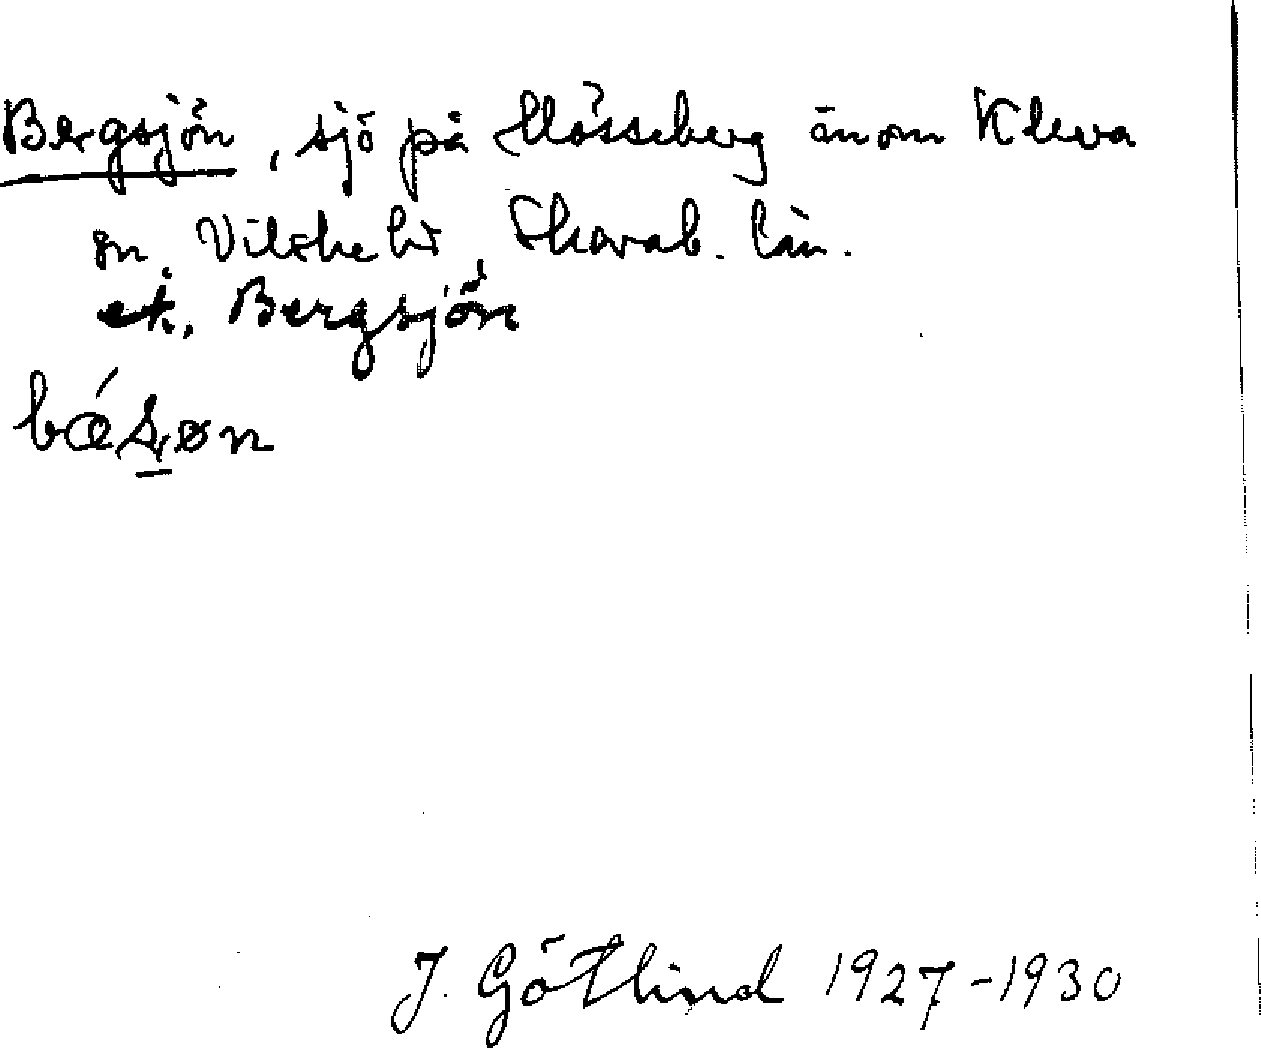 Bergsjön, sjö på Mösseberg inom Kleva
sn, Vilske hd, Skarab. län.
ek. Bergsjön
J. Götlind 1927-1930